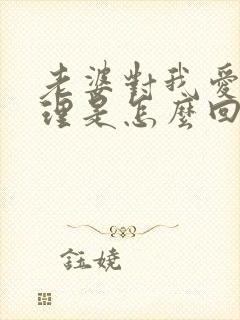 老婆對我愛
理是怎麼回
鈺嬈